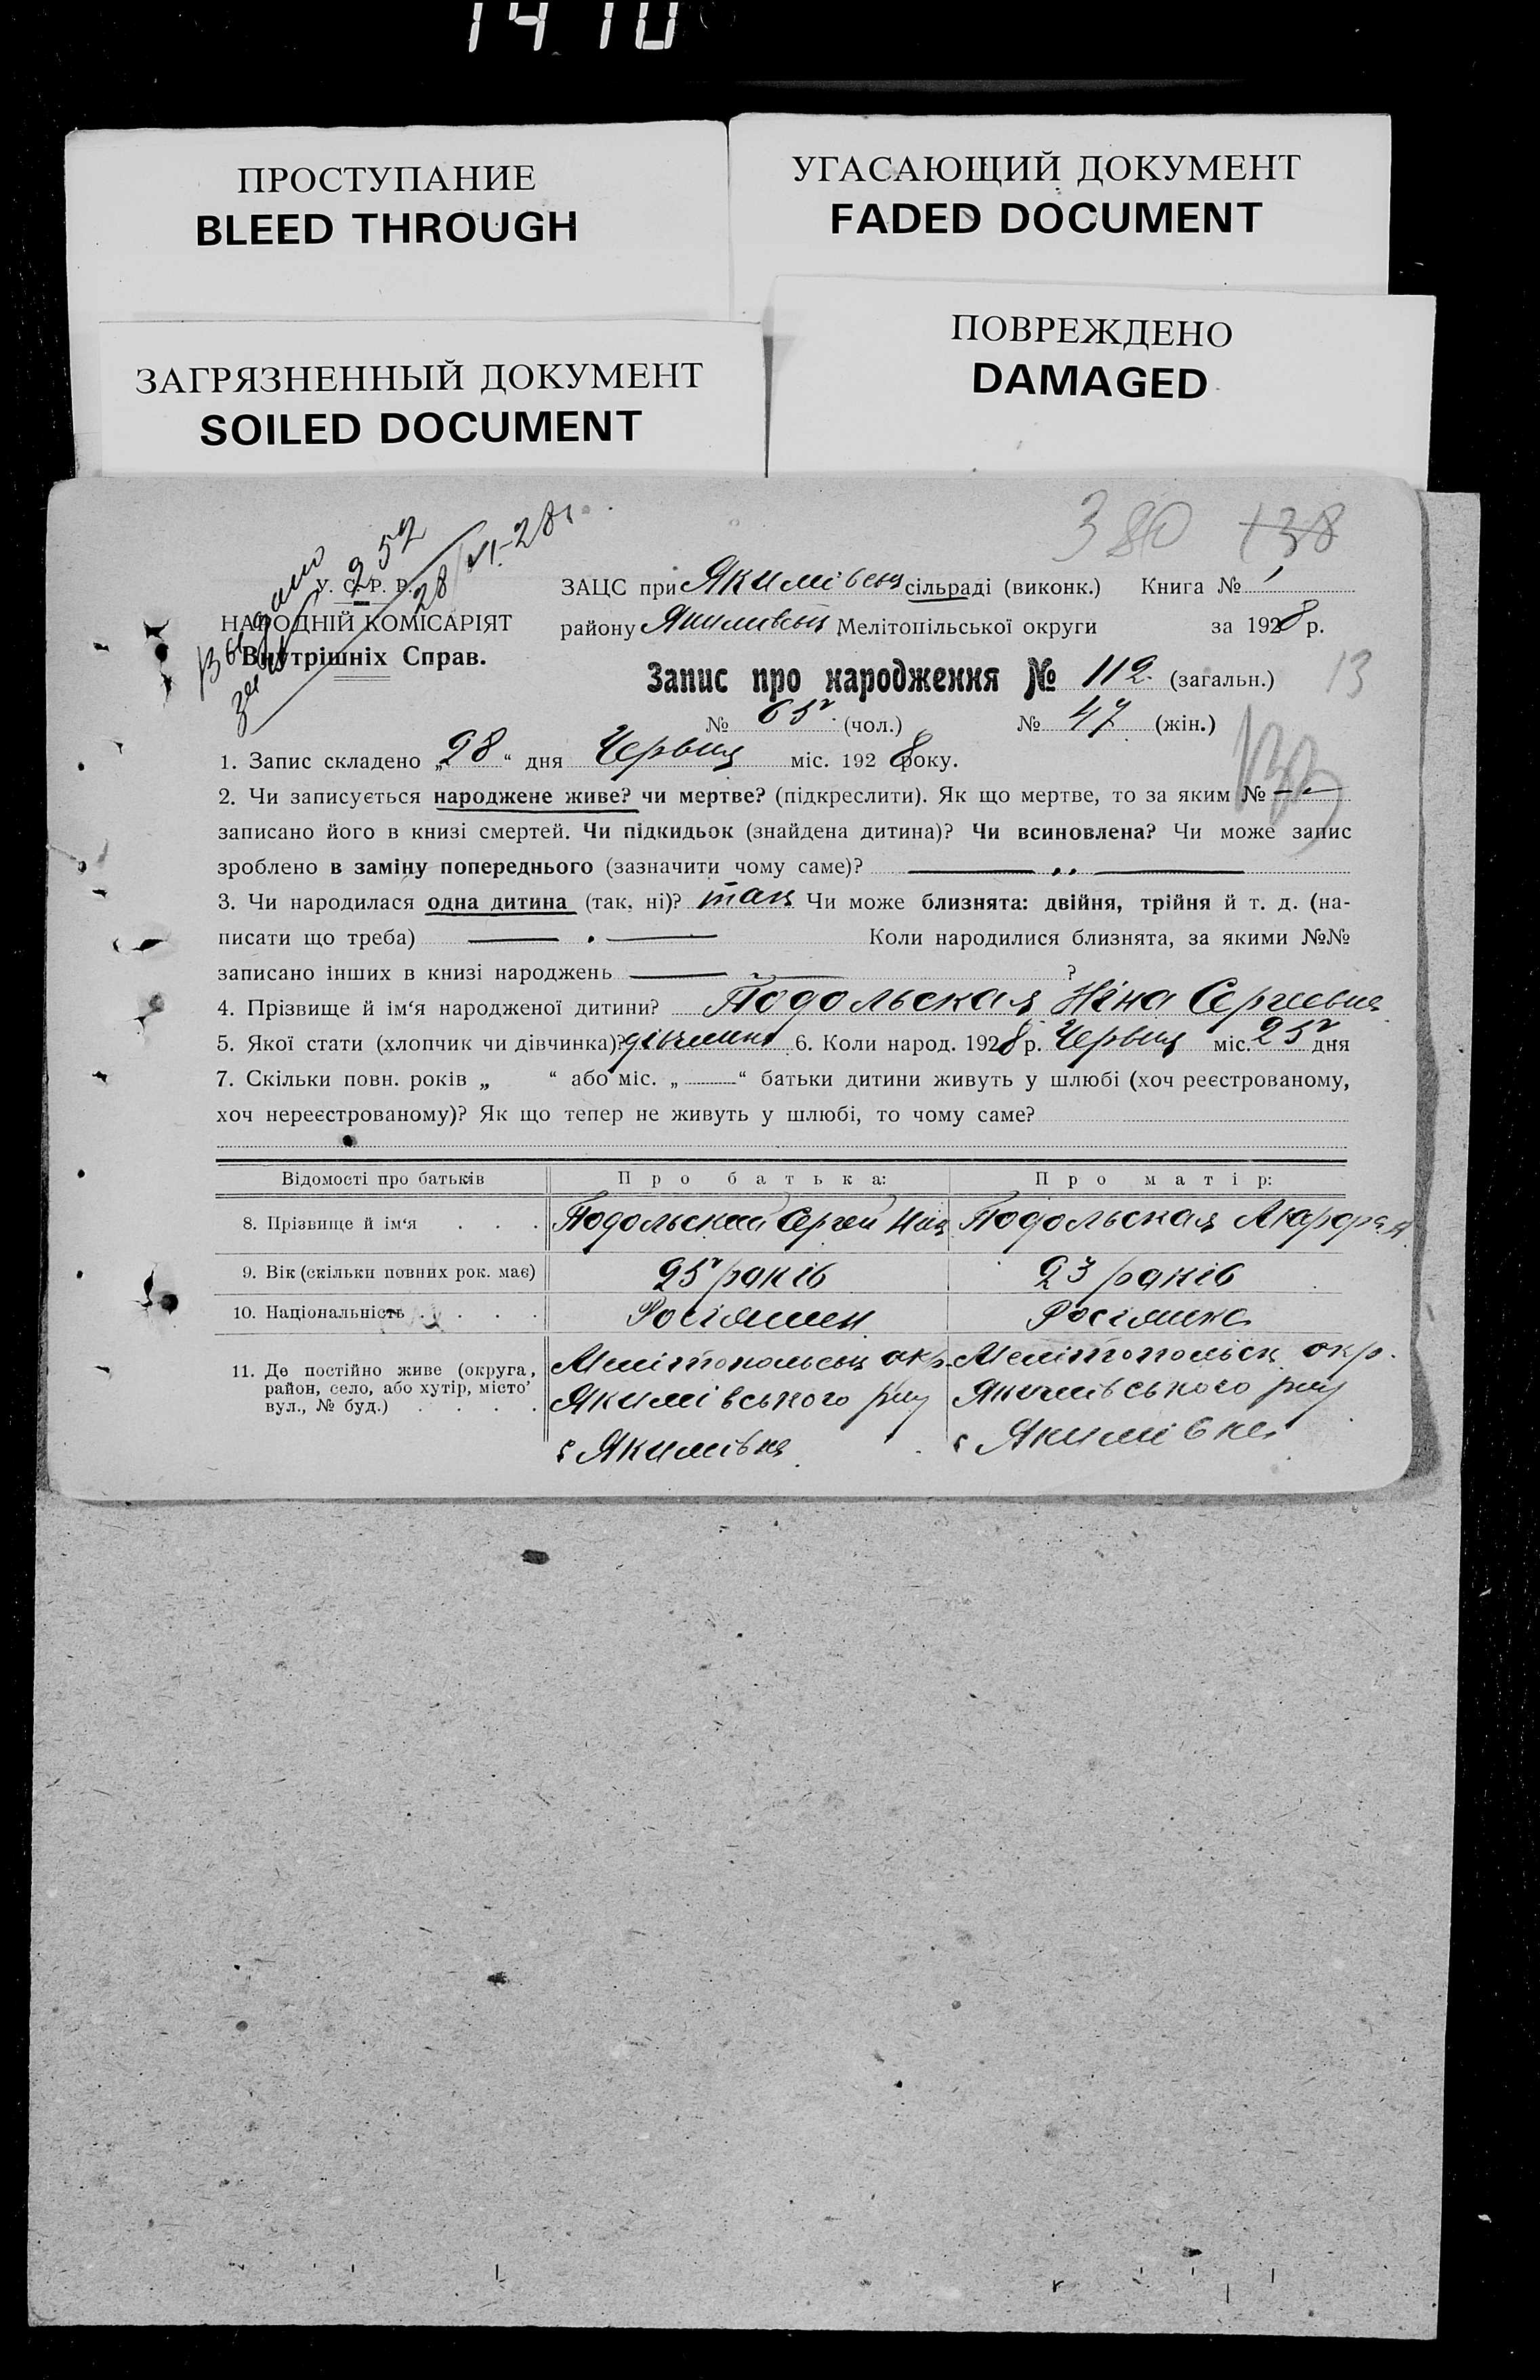 1410
ПРОСТУПАНИЕ
BLEED THROUGH
УГАСАЮЩИЙ ДОКУМЕНТ
FADED DOCUMENT
ЗАГРЯЗНЕННЫЙ ДОКУМЕНТ
SOILED DOCUMENT
ПОВРЕЖДЕНО
DAMAGED
380 138
Видано
252
28/VI-28
У. С. Р. Р.
НАРОДНІЙ КОМІСАРІЯТ
Внутрішніх Справ.
ЗАЦС при Якимівськ сільраді (виконк.) Книга № 1
району Якимівськ Мелітопільської округи за 1928 р.
Запис про народження № 112 (загальн.)
13
№ 65 (чол.) № 47 (жін.)
1. Запис складено „28“ дня Червня міс. 1928 року.
2. Чи записується народжене живе? чи мертве? (підкреслити). Як що мертве, то за яким № —
записано його в книзі смертей. Чи підкидьок (знайдена дитина)? Чи всиновлена? Чи може запис
зроблено в заміну попереднього (зазначити чому саме)? — „ —
3. Чи народилася одна дитина (так, ні)? так Чи може близнята: двійня, трійня й т. д. (на-
писати що треба) — . — Коли народилися близнята, за якими №№
записано інших в книзі народжень — — ?
4. Прізвище й ім‘я народженої дитини? Подольская Ніна Сергиевна
5. Якої стати (хлопчик чи дівчинка)? дівчина 6. Коли народ. 1928 р. Червня міс. 25 дня
7. Скільки повн. років „ “ або міс. „ — “ батьки дитини живуть у шлюбі (хоч реєстрованому,
хоч нереєстрованому)? Як що тепер не живуть у шлюбі, то чому саме?
Відомості про батьків Про батька: Про матір:
8. Прізвище й ім‘я . . . Подольский Сергей Подольская
9. Вік (скільки повних рок. має) 25 років 23 років
10. Національність . . . . Росіянин Росіянка
11. Де постійно живе (округа, Мелітопольськ окр. Мелітопольськ окр.
район, село, або хутір, місто Якимівського р-ну Якимівського р-ну
вул., № буд.) . . . .
с Якимівка с Якимівка